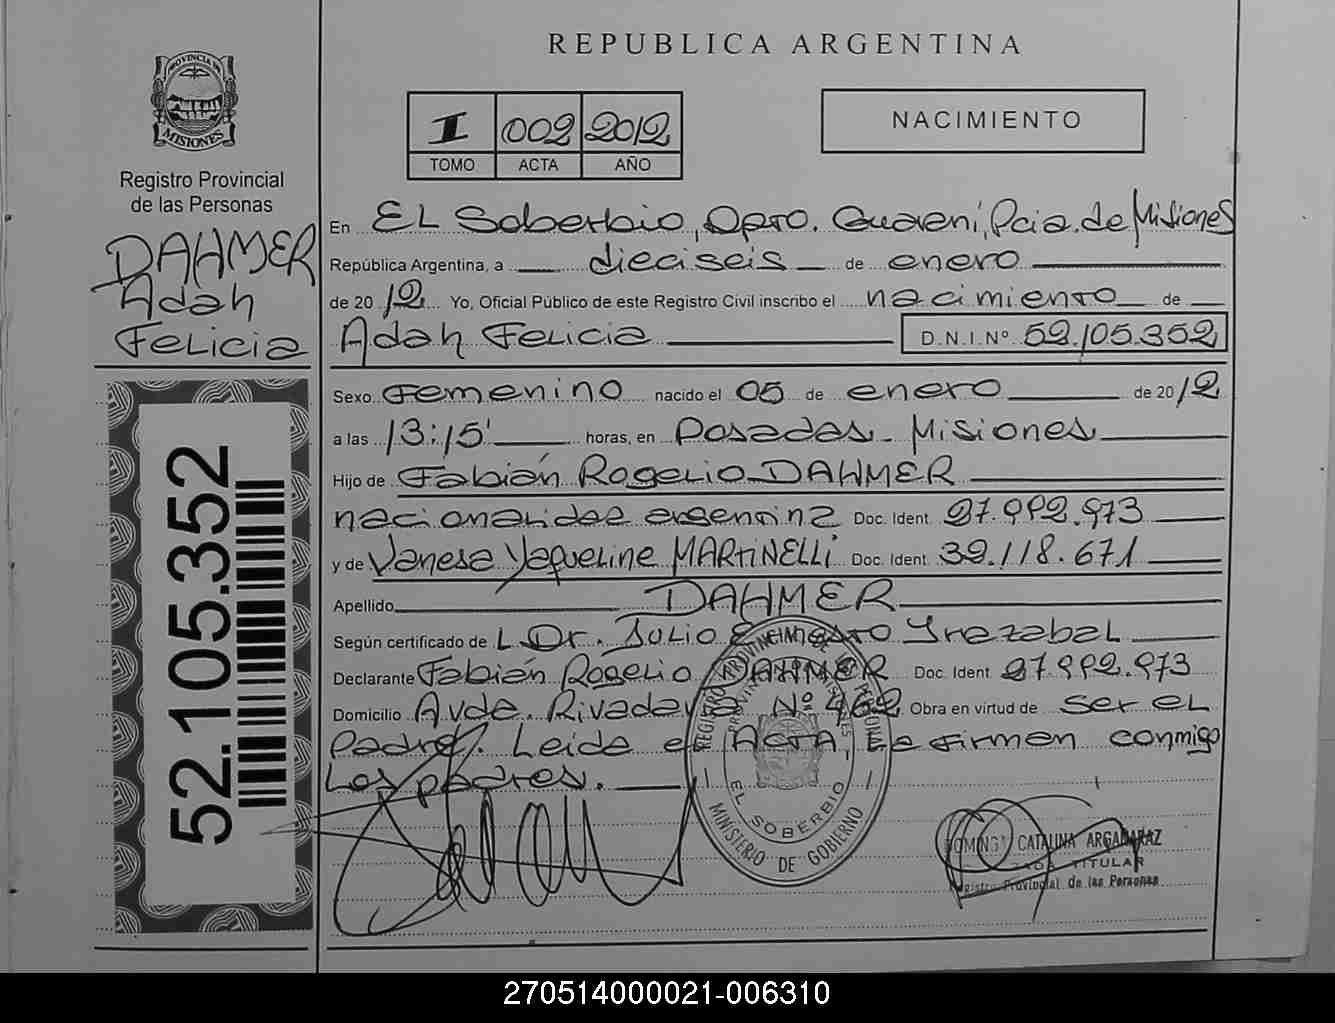 REPUBLICA ARGENTINA
PROVINCIA DE
MISIONES
Registro Provincial
de las Personas
DAHMER
Adah
Felicia
52.105.352
I 002 2012
TOMO ACTA AÑO
NACIMIENTO
En EL Soberbio, Dpto. Guaraní, Pcia. de Misiones
República Argentina, a dieciseis de enero
de 2012 Yo, Oficial Público de este Registro Civil inscribo el nacimiento de
Adah Felicia D.N.I.Nº 52.105.352
Sexo Femenino nacido el 05 de enero de 2012
a las 13:15' horas, en Posadas - Misiones
Hijo de Fabián Rogelio DAHMER
nacionalidad argentina Doc. Ident. 27.992.973
y de Vanesa Yaqueline MARTINELLI Doc. Ident. 39.118.671
Apellido DAHMER
Según certificado de L Dr. Julio Ernesto Irrazabal
Declarante Fabián Rogelio DAHMER Doc. Ident. 27.992.973
Domicilio Avda. Rivadavia Nº 462 Obra en virtud de ser el
padre. Leida el Acta, la firman conmigo
los padres.
REGISTRO PROVINCIAL DE LAS PERSONAS
EL SOBERBIO
MINISTERIO DE GOBIERNO
CATALINA ARGAÑARAZ
TITULAR
Registro Provincial de las Personas
270514000021-006310